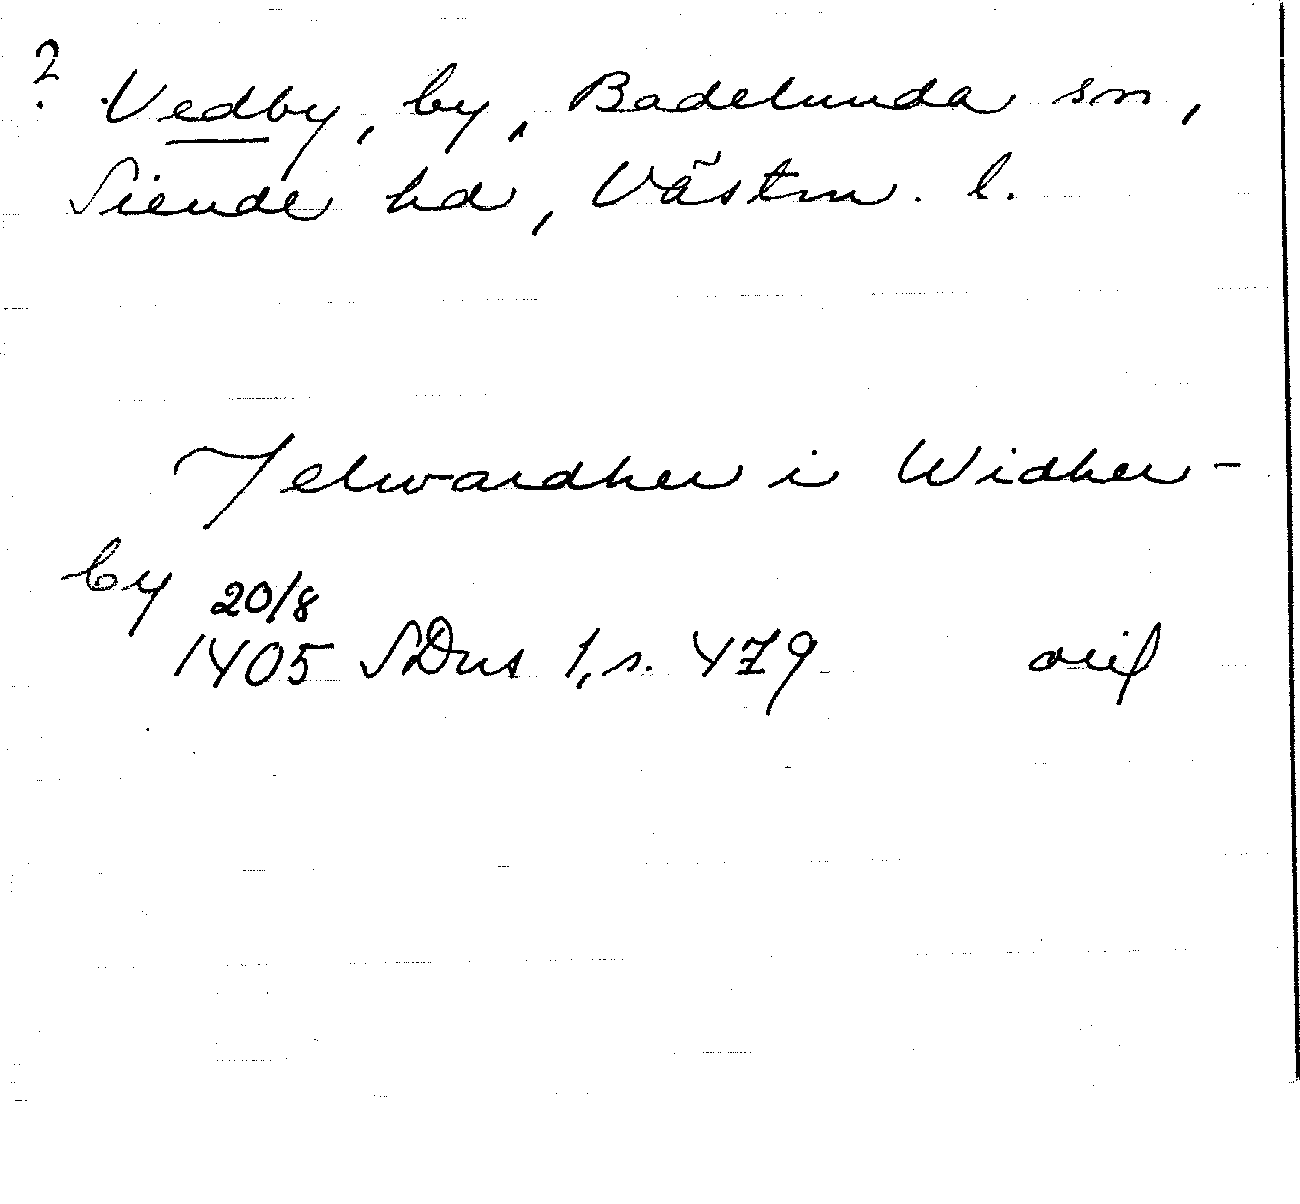 ? Vedby, by, Badelunda sn,
Siende hd, Västm. l.
Jelwardher i Widher-
by
20/8
1405 SDns 1, s. 479 orig